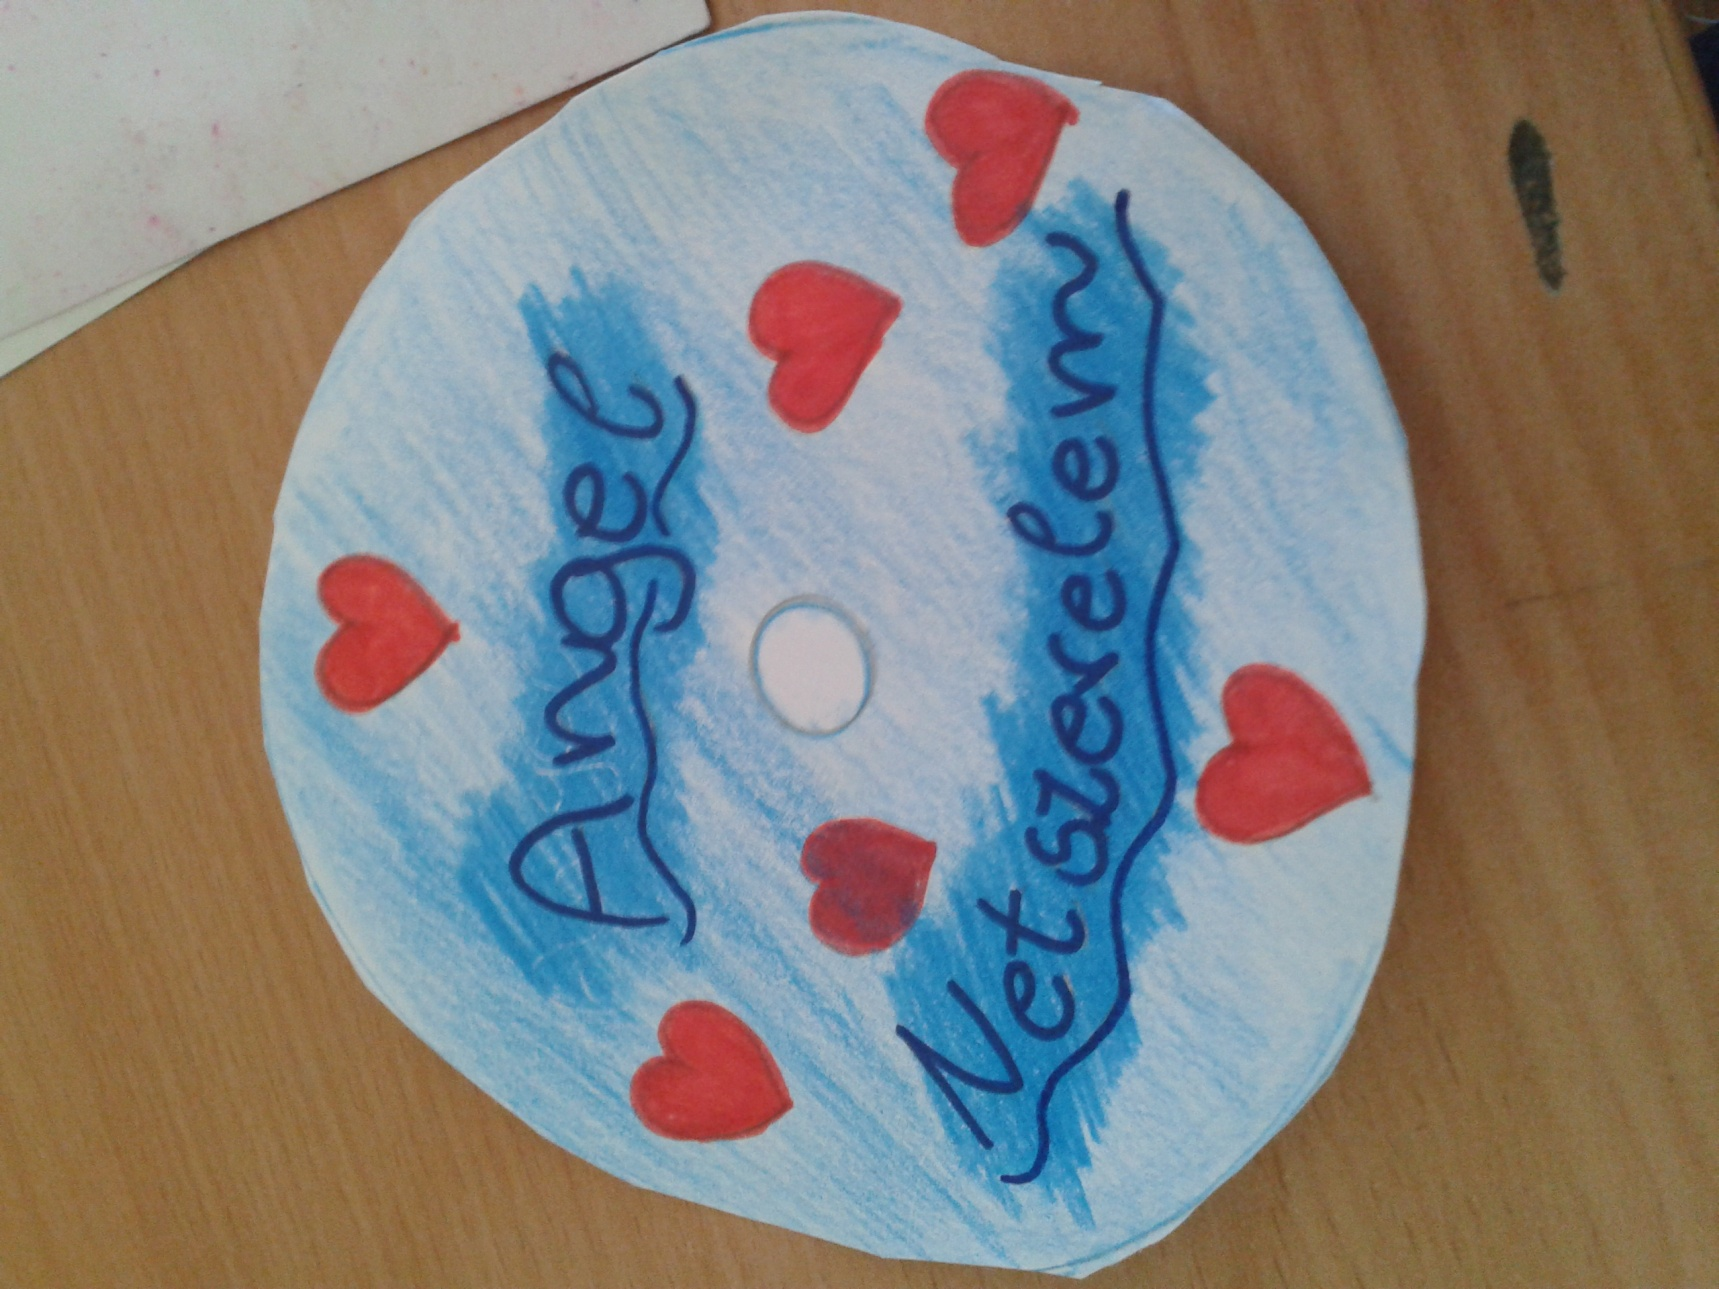 Angel
Netszerelem